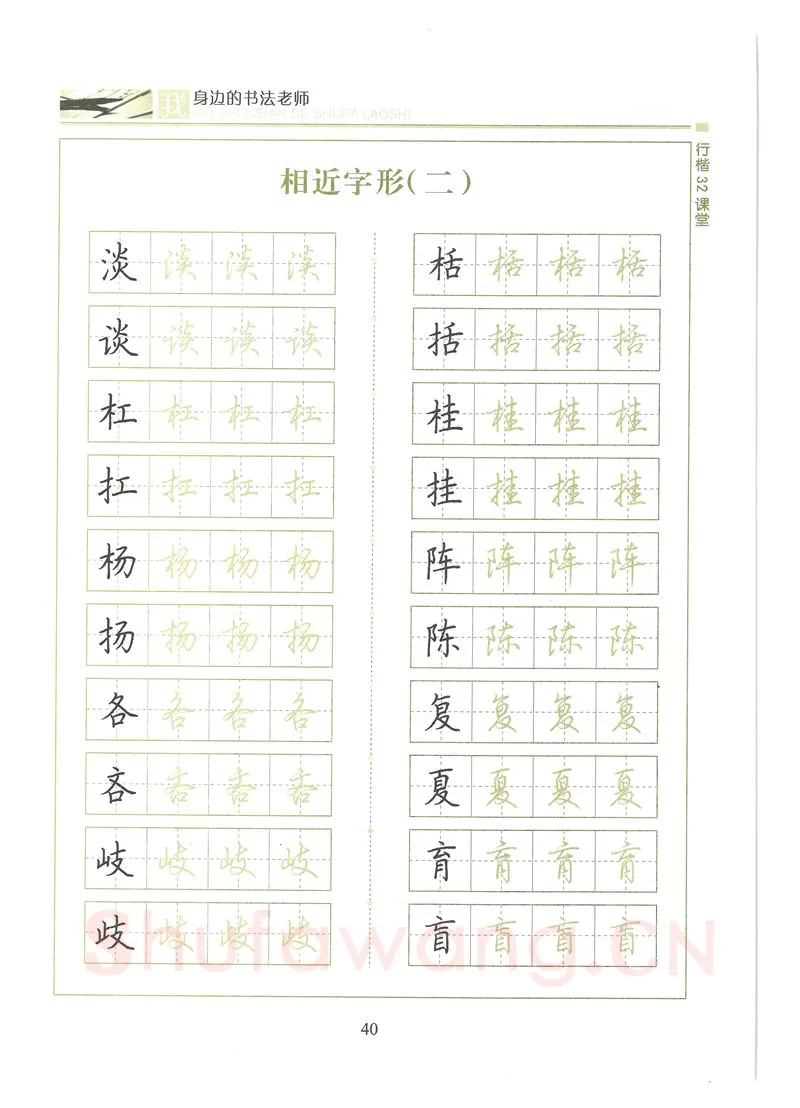 我身边的书法老师
WO SHENBIAN DE SHUFA LAOSHI
行楷32课堂
相近字形(二)
淡淡淡淡
谈谈谈谈
杠杠杠杠
扛扛扛扛
杨杨杨杨
扬扬扬扬
各各各各
吝吝吝吝
岐岐岐岐
歧歧歧歧
栝栝栝栝
括括括括
桂桂桂桂
挂挂挂挂
阵阵阵阵
陈陈陈陈
复复复复
夏夏夏夏
育育育育
盲盲盲盲
Shufawang.CN
40